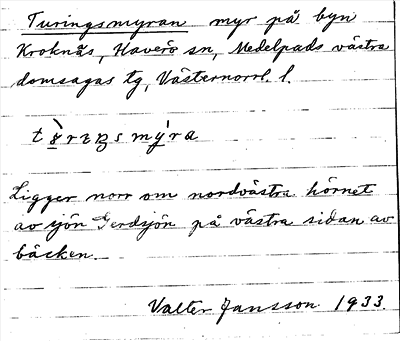 Turingsmyran myr på byn
Kroknås, Haverö sn, Medelpads västra
domsagas tg, Västernorrl. l.
Ligger norr om nordvästra hörnet
av sjön Gerdsjön på västra sidan av
bäcken.
Valter Jansson 1933.